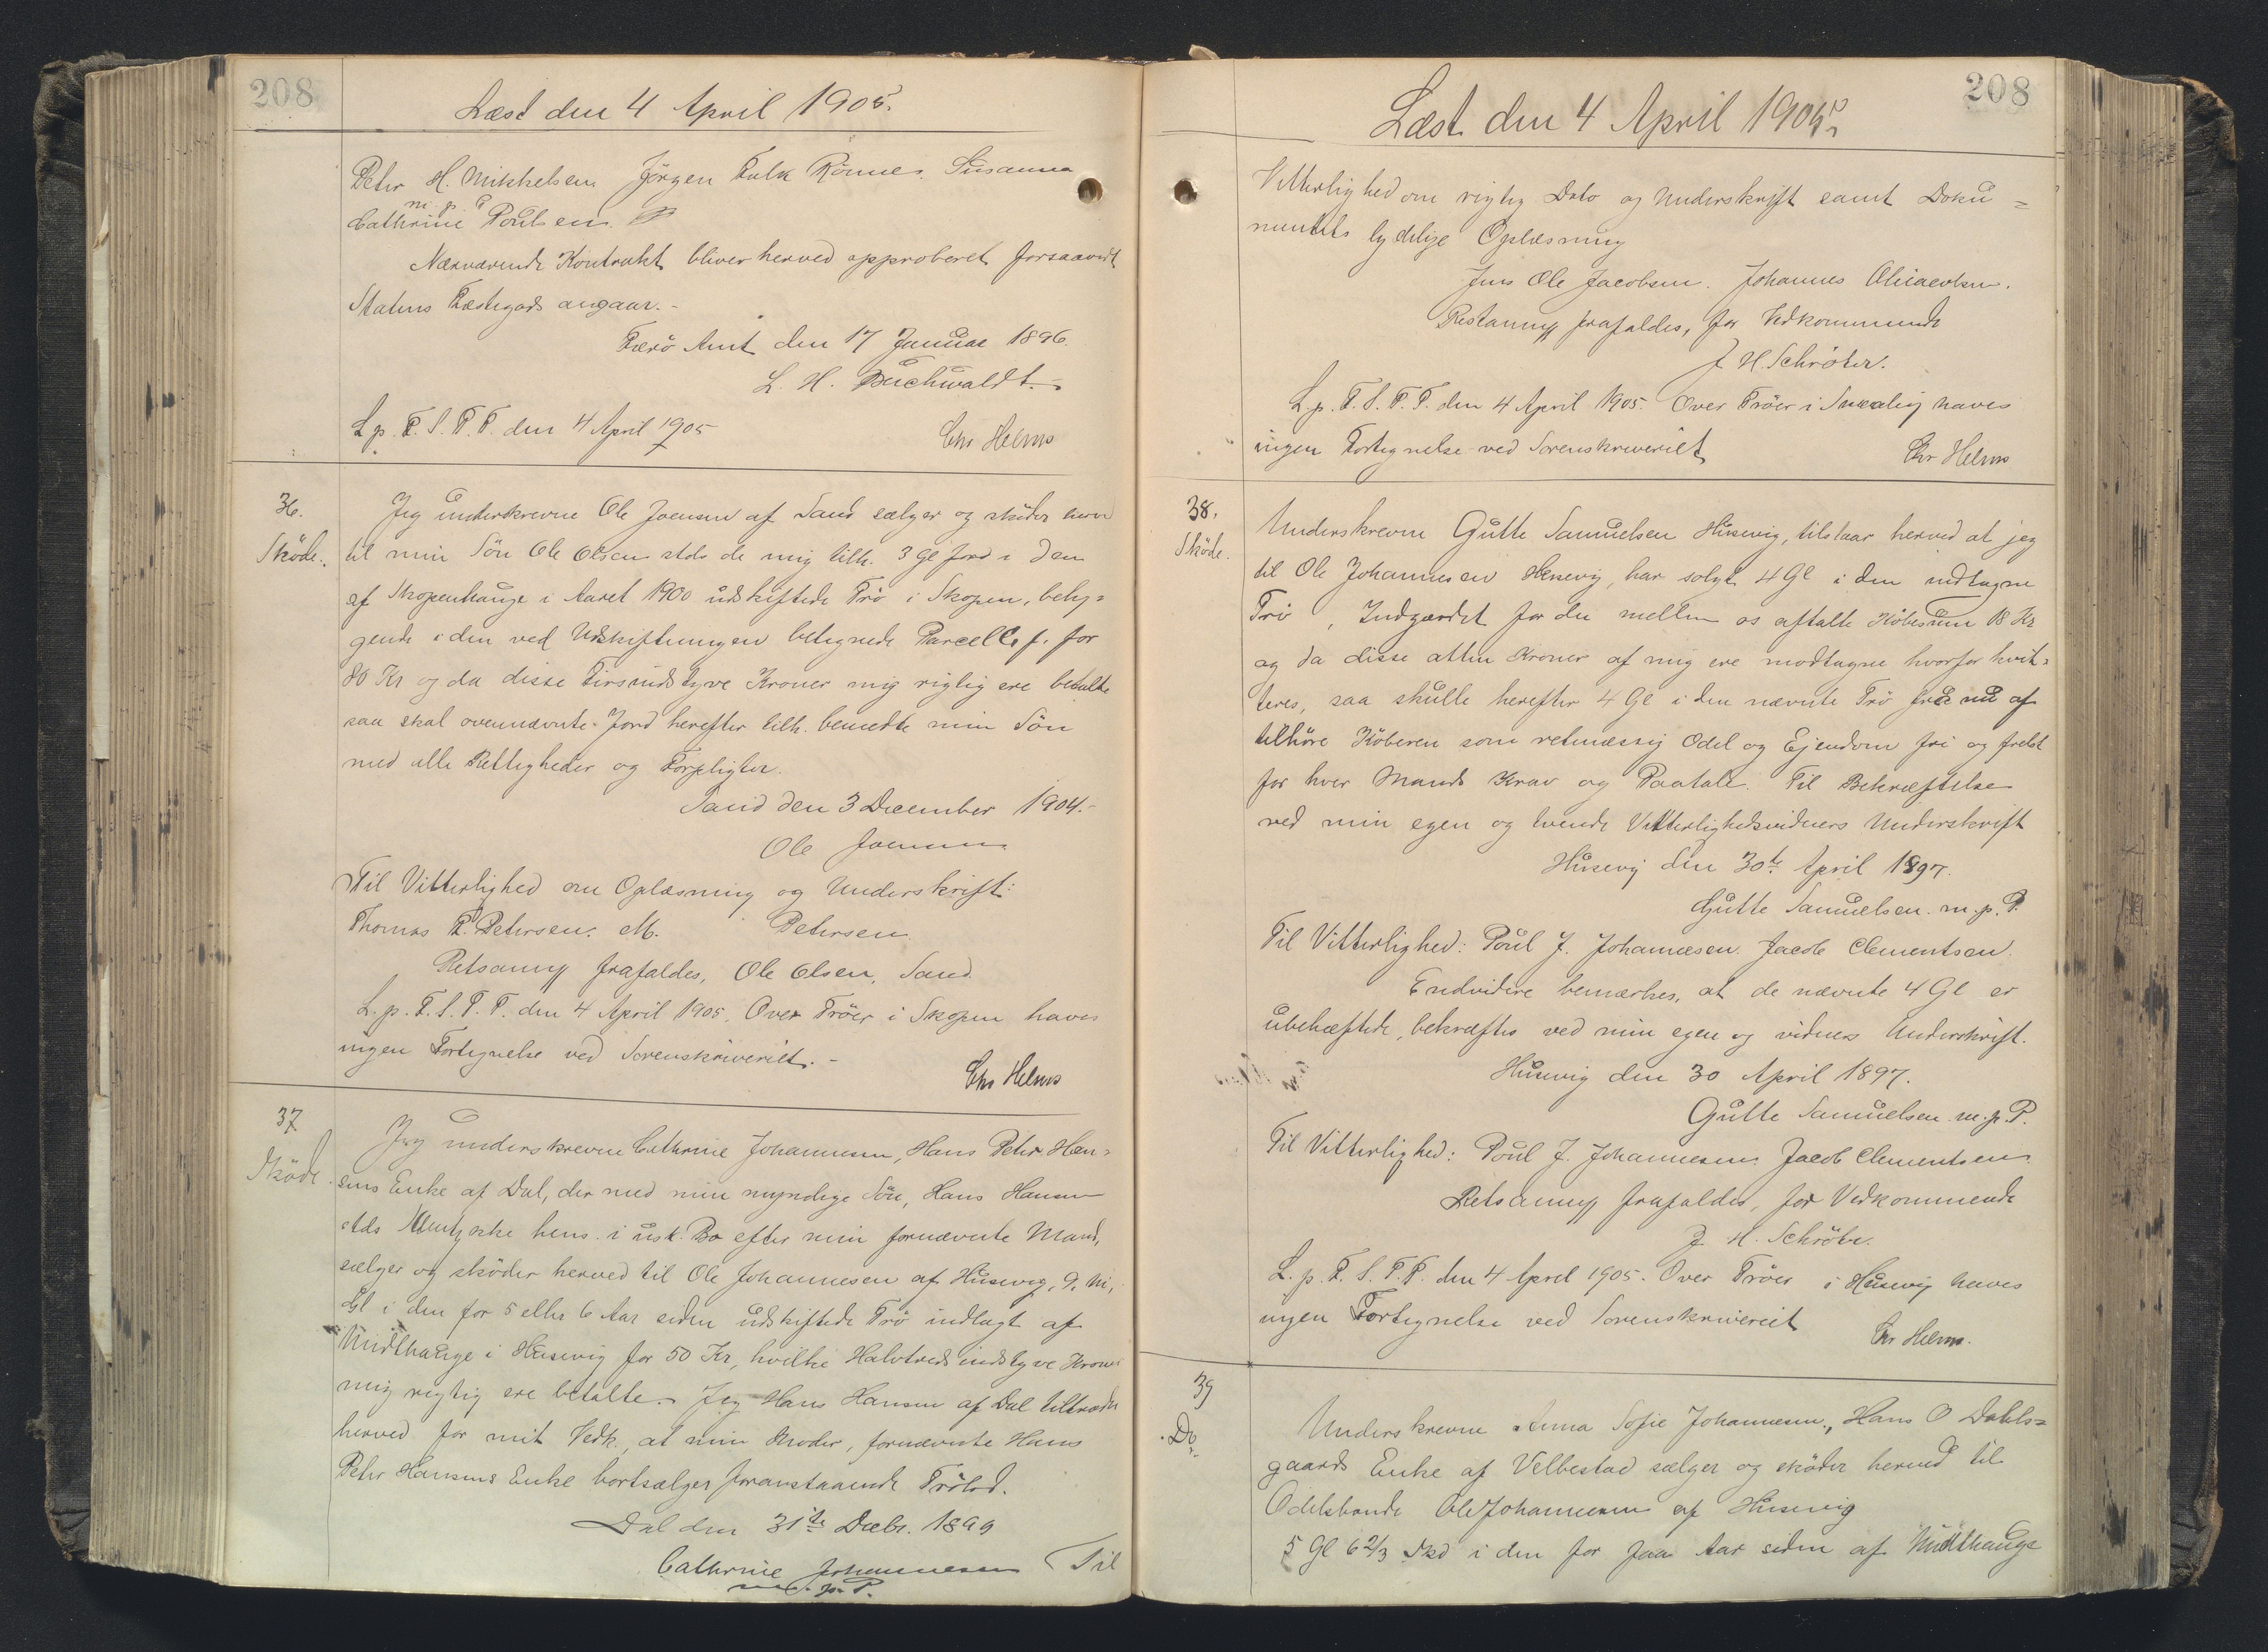 208
Læst den 4 April 1905.
Peter H. Mikkelsen Jörgen Falk Rönne. Susanna
m. p. P
Cathrine Poulsen
Nærværende Kontrakt bliver herved approberet forsaavidt
Statens Fæstegods angaar. -
Færö Amt den 17 Januar 1896.
L. H. Buchwaldt. -
L. p. F. S. P. T. den 4 April 1905
Chr Helms
36.
Sköde.
Jeg underskrevne Ole Joensen af Sand sælger og sköder herved
til min Sön Ole Olsen stds de mig tilh. 3 Gl Jord i den
af Skopenhauge i Aaret 1900 udskiftede Trö i Skopen, belig-
gende i den ved Udskiftningen betegnede Parcelle f. for
80 Kr og da disse Firsindstyve Kroner mig rigtig ere betalte
saa skal ovennævnte Jord herefter tilh. bemeldte min Sön
med alle Rettigheder og Forpligter.
Sand den 3 December 1904. -
Ole Joensen
Til Vitterlighed om Oplæsning og Underskrift:
Thomas P. Petersen. M. Petersen.
Retsanmg frafaldes, Ole Olsen, Sand.
L. p. F. S. P. T. den 4 April 1905. Over Tröer i Skopen haves
ingen Fortegnelse ved Sorenskriveriet. -
Chr Helms
37
Sköde.
Jeg underskrevne Cathrine Johannesen, Hans Peter Han-
sens Enke af Dal, der med min myndige Sön, Hans Hansen
stds hens. i usk. Bo efter min fornævnte Mand,
sælger og sköder herved til Ole Johannesen af Husevig, 9, ni,
Gl i den for 5 eller 6 Aar siden udskiftede Trö indtagt af
Midthauge i Husevig for 50 Kr, hvilke Halvtredsindstyve Kroner
mig rigtig ere betalte. - Jeg Hans Hansen af Dal tiltræder
herved for mit Vedk, at min Moder, fornævnte Hans
Peter Hansens Enke bortsælger foranstaaende Trölod.
Dal den 31te Decbr. 1899
Cathrine Johannesen
m. p. P.
Til
208
Læst den 4 April 1905.
Vitterlighed om rigtig Dato og Underskrift samt Doku=
mentets lydelige Oplæsning
Jens Ole Jacobsen. Johannes
Retsanmg frafaldes, for Vedkommende
J H. Schröter.
L. p. F. S. P. T. den 4 April 1905. Over Tröer i haves
ingen Fortegnelse ved Sorenskriveriet
Chr Helms
38.
Sköde.
Underskrevne Gutte Samuelsen Husevig, tilstaar herved at jeg
til Ole Johannesen Husevig, har solgt 4 Gl i den indtagne
Trö, Indgærdet for den mellem os aftalte Köbesum 18 Kr
og da disse atten Kroner af mig ere modtagne hvorfor kvit-
teres, saa skulle herefter 4 Gl i den nævnte Trö fra nu af
tilhöre Köberen som retmæssig Odel og Ejendom fri og frelst
for hver Mands Krav og Paatale. Til Bekræftelse
ved min egen og tvende Vitterlighedsvidners Underskrift
Husevig den 30te April 1897.
Gutte Samuelsen. m. p. P.
Til Vitterlighed: Poul J. Johannesen. Jacob Clementsen.
Endvidere bemærkes, at de nævnte 4 Gl er
ubehæftede, bekræftes ved min egen og vidners Underskrift.
Husevig den 30 April 1897.
Gutte Samuelsen. m. p. P.
Til Vitterlighed: Poul J. Johannesen. Jacob Clementsen.
Retsanmg frafaldes, for Vedkommende
J. H. Schröter.
L. p. F. S. P. T. den 4 April 1905. Over Tröer i Husevig haves
ingen Fortegnelse ved Sorenskriveriet
Chr Helms.
39
Do
Underskrevne Anna Sofie Johannesen, Hans O Dahls=
gaards Enke af Velbestad sælger og sköder herved til
Odelsbonde Ole Johannesen af Husevig
5 Gl 6 2/3 Skd i den for faa Aar siden af Midthauge